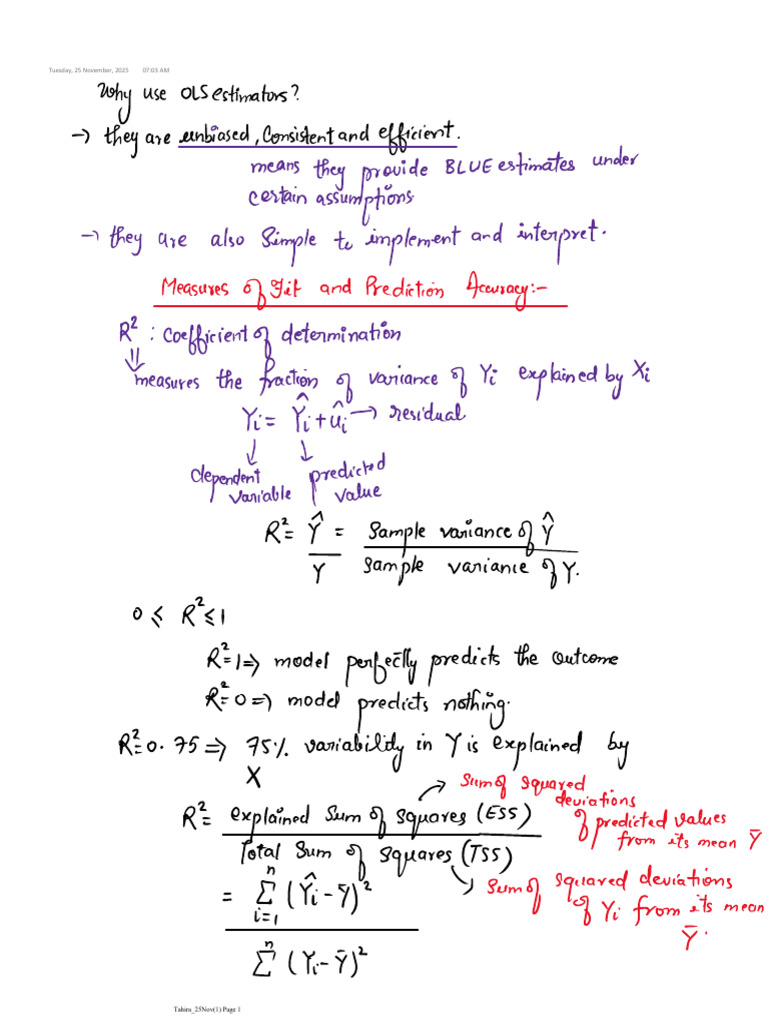 Tuesday, 25 November, 2025 07:03 AM
Why use OLS estimators?
→ they are unbiased, Consistent and efficient.
means they provide BLUE estimates under
certain assumptions.
→ they are also simple to implement and interpret.
Measures of Fit and Prediction Accuracy:-
R² : Coefficient of determination
⇓
measures the fraction of variance of Yi explained by Xi
Yi = Ŷi + ûi → residual
↓ ↓
dependent variable predicted value
R² = Ŷ / Y = Sample variance of Ŷ / Sample variance of Y.
0 ≤ R² ≤ 1
R²=1 ⇒ model perfectly predicts the outcome
R²=0 ⇒ model predicts nothing.
R²=0.75 ⇒ 75% variability in Y is explained by
X
R² = explained Sum of squares (ESS) / Total Sum of squares (TSS)
→ Sum of squared
deviations
of predicted values
from its mean Ȳ
→ Sum of squared deviations
of Yi from its mean
Ȳ.
= Σ_{i=1}^{n} (Ŷi - Ȳ)²
Σ^{n} (Yi - Ȳ)²
Tahira_25Nov(1) Page 1